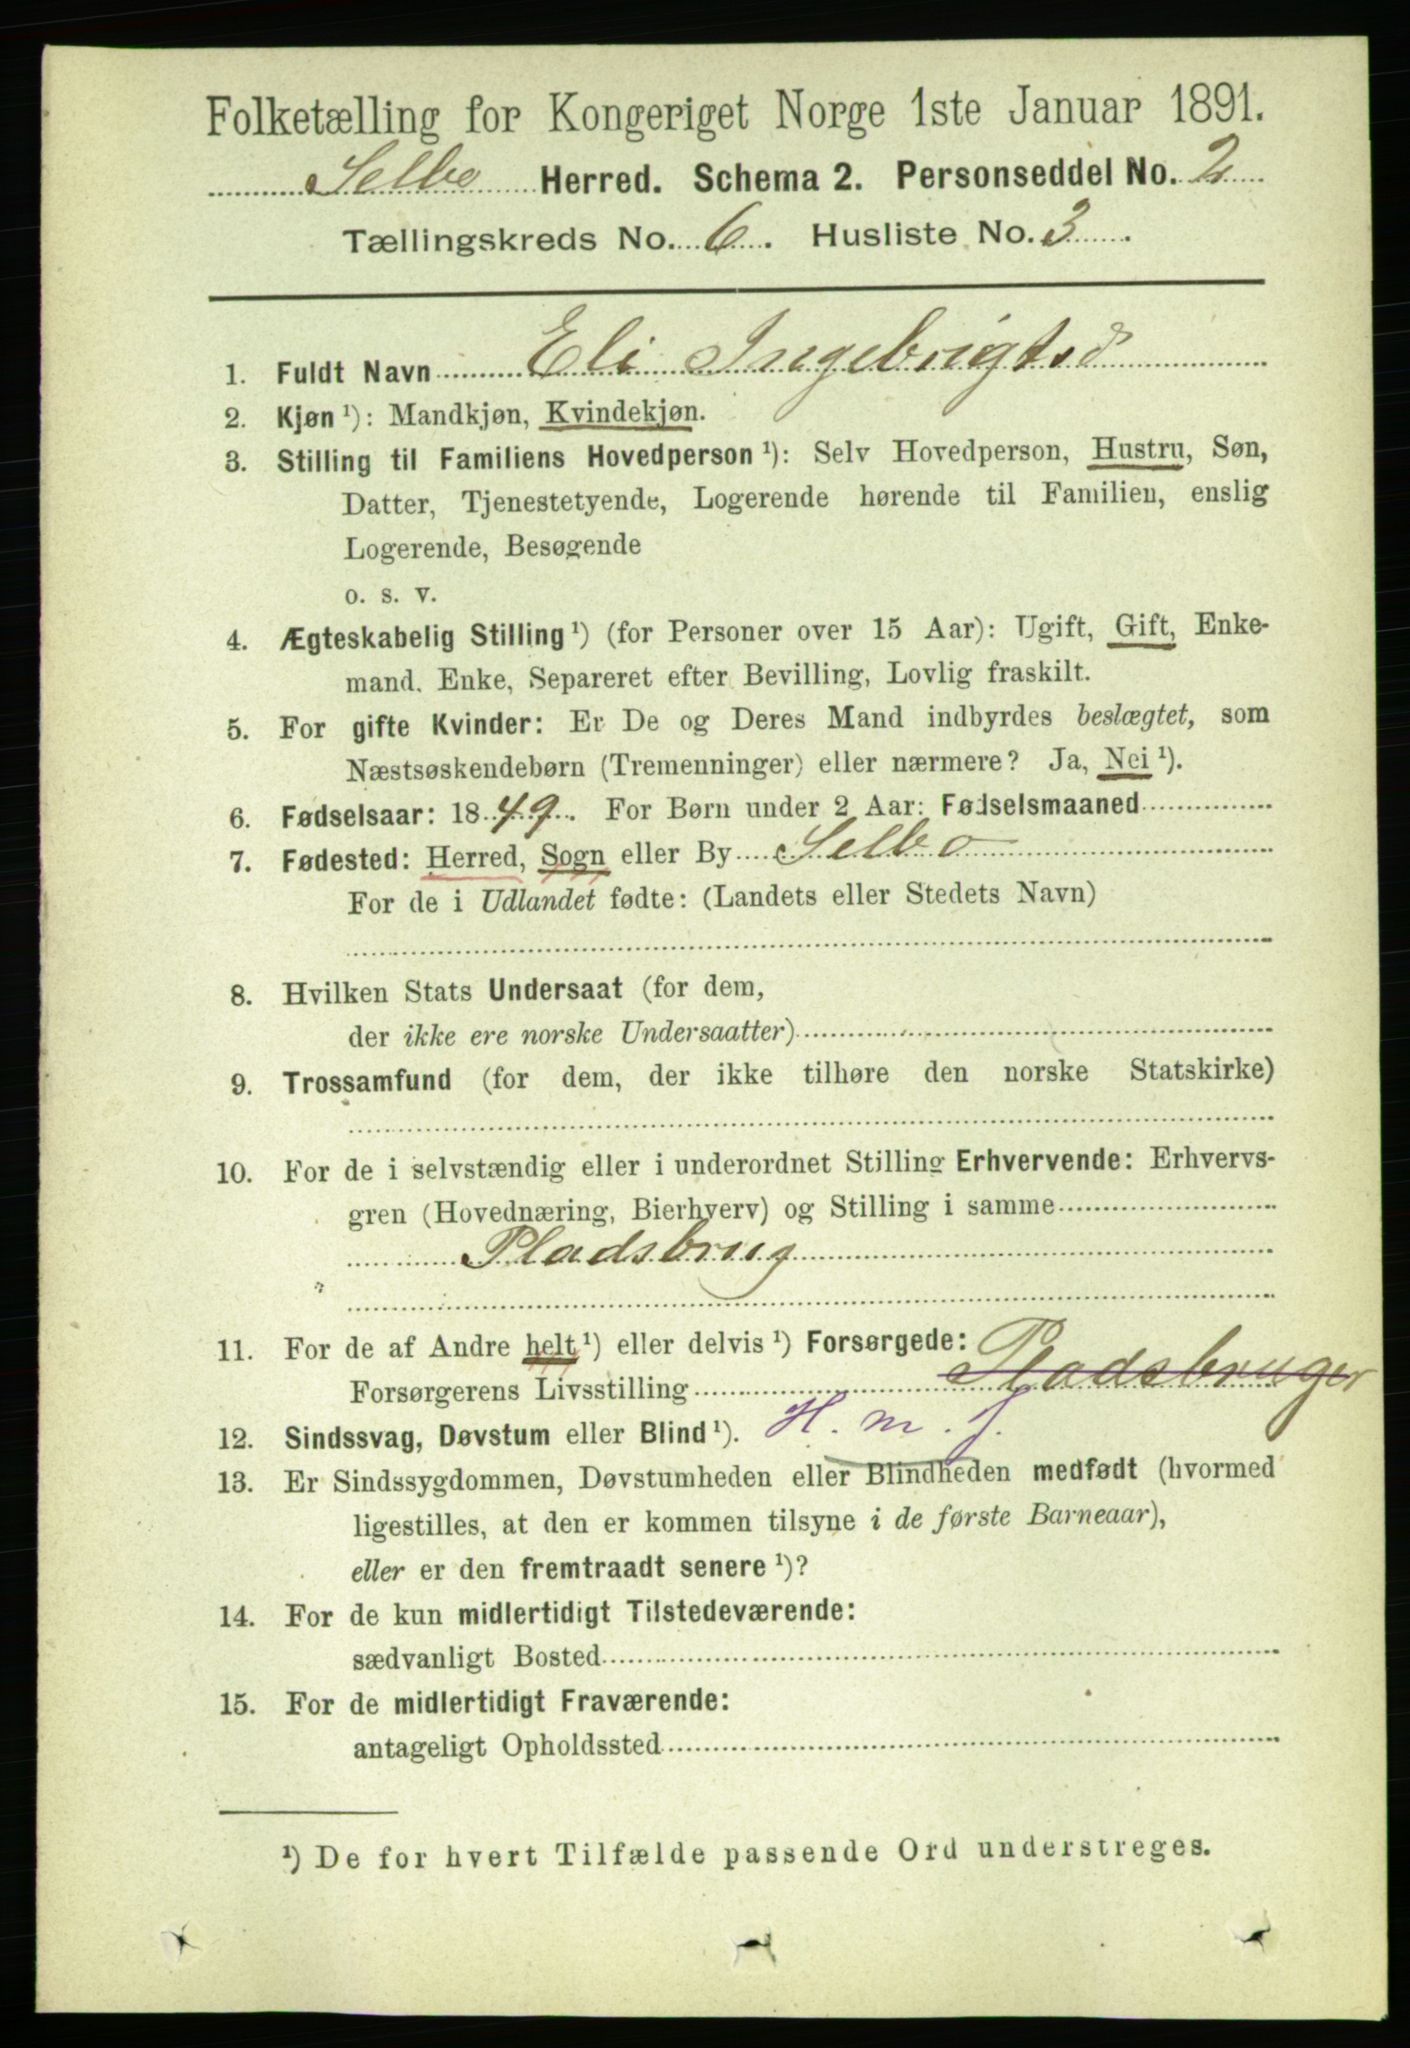 Folketælling for Kongeriget Norge 1ste Januar 1891.
Selbo Herred. Schema 2. Personseddel No. 2
Tællingskreds No. 6. Husliste No. 3.
1. Fuldt Navn Eli Ingebrigtsd
2. Kjøn ¹): Mandkjøn, Kvindekjøn.
3. Stilling til Familiens Hovedperson ¹): Selv Hovedperson, Hustru, Søn,
Datter, Tjenestetyende, Logerende hørende til Familien, enslig
Logerende, Besøgende
o. s. v.
4. Ægteskabelig Stilling ¹) (for Personer over 15 Aar): Ugift, Gift, Enke-
mand, Enke, Separeret efter Bevilling, Lovlig fraskilt.
5. For gifte Kvinder: Er De og Deres Mand indbyrdes beslægtet, som
Næstsøskendebørn (Tremenninger) eller nærmere? Ja, Nei ¹).
6. Fødselsaar: 1849. For Børn under 2 Aar: Fødselsmaaned
7. Fødested: Herred, Sogn eller By Selbo
For de i Udlandet fødte: (Landets eller Stedets Navn)
8. Hvilken Stats Undersaat (for dem,
der ikke ere norske Undersaatter)
9. Trossamfund (for dem, der ikke tilhøre den norske Statskirke)
10. For de i selvstændig eller i underordnet Stilling Erhvervende: Erhvervs-
gren (Hovednæring, Bierhverv) og Stilling i samme
Pladsbrug
11. For de af Andre helt ¹) eller delvis ¹) Forsørgede:
Forsørgerens Livsstilling Pladsbruger
12. Sindssvag, Døvstum eller Blind ¹). H. m. J.
13. Er Sindssygdommen, Døvstumheden eller Blindheden medfødt (hvormed
ligestilles, at den er kommen tilsyne i de første Barneaar),
eller er den fremtraadt senere ¹)?
14. For de kun midlertidigt Tilstedeværende:
sædvanligt Bosted
15. For de midlertidigt Fraværende:
antageligt Opholdssted
¹) De for hvert Tilfælde passende Ord understreges.